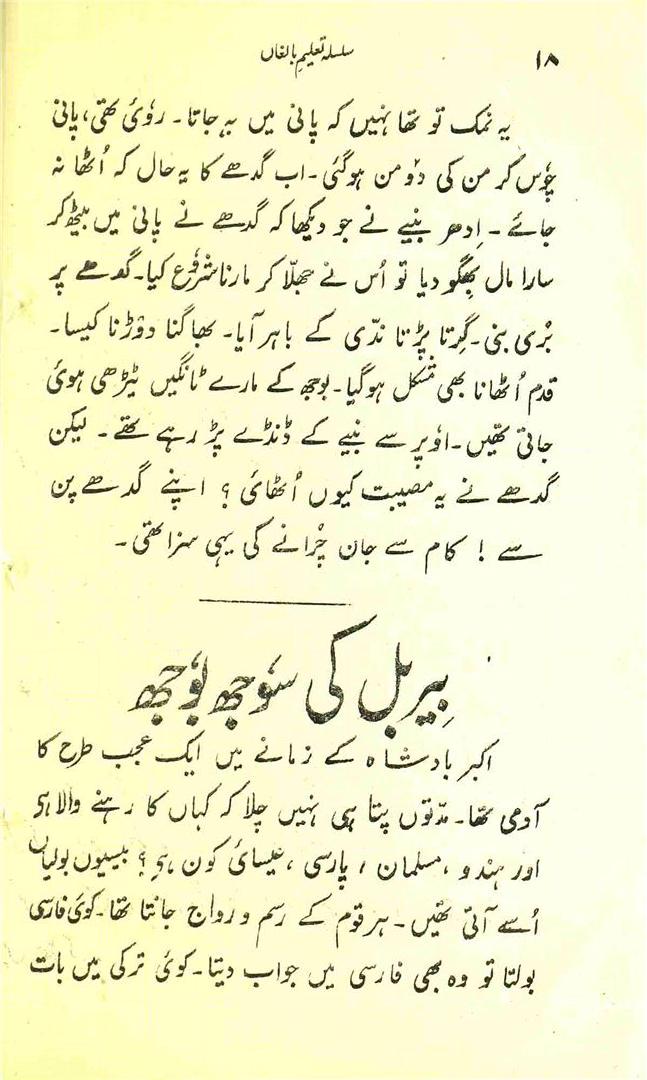 ۱۸
سلسلہ تعلیمِ بالغاں
یہ نمک تو تھا نہیں کہ پانی میں بہہ جاتا۔ روٗئی تھی، پانی
چوٗس کر من کی دوٗ من ہوگئی۔ اب گدھے کا یہ حال کہ اُٹھا نہ
جائے۔ اِدھر بنیے نے جو دیکھا کہ گدھے نے پانی میں بیٹھ کر
سارا مال بھِگو دیا تو اُس نے جھلّا کر مارنا شروٗع کیا۔ گدھے پر
بُری بنی۔ گِرتا پڑتا ندّی کے باہر آیا۔ بھاگنا دوٗڑنا کیسا۔
قدم اُٹھانا بھی مشکل ہوگیا۔ بوجھ کے مارے ٹانگیں ٹیڑھی ہوئی
جاتی تھیں۔ اوٗپر سے بنیے کے ڈنڈے پڑ رہے تھے۔ لیکن
گدھے نے یہ مصیبت کیوں اُٹھائی؟ اپنے گدھے پن
سے! کام سے جان چُرانے کی یہی سزا تھی۔
بِیربل کی سوٗجھ بوٗجھ
اکبر بادشاہ کے زمانے میں ایک عجب طرح کا
آدمی تھا۔ مدّتوں پتا ہی نہیں چلا کہ کہاں کا رہنے والا ہی
اور ہندو، مسلمان، پارسی، عیسائی کون ہی؟ بیسیوں بولیاں
اُسے آتی تھیں۔ ہر قوم کے رسم و رواج جانتا تھا۔ کوئی فارسی
بولتا تو وہ بھی فارسی میں جواب دیتا۔ کوئی ترکی میں بات